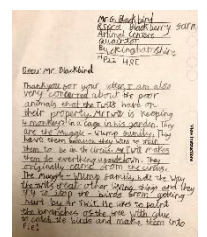 Mr G. Blackbird
Arlington Centre
Quainton
Buckinghamshire
HP22
Dear Mr Blackbird
Thank you for your letter, I am also
very concerned about the poor
animals that the Twits have on
their property. Mr Twit is keeping
monkeys in a cage in his garden. They
are the Muggle-Wump family. They
have them because they want to train
them to be in the circus. Mr Twit makes
them do everything upside down. They
originally came from the circus.
The muggle-wump family hate the way
the twits treat other living things and they
try to stop the birds from getting
hurt by Mr Twit. He likes to paint
the branches of the tree with glue
to catch the birds and make them into
Pie.